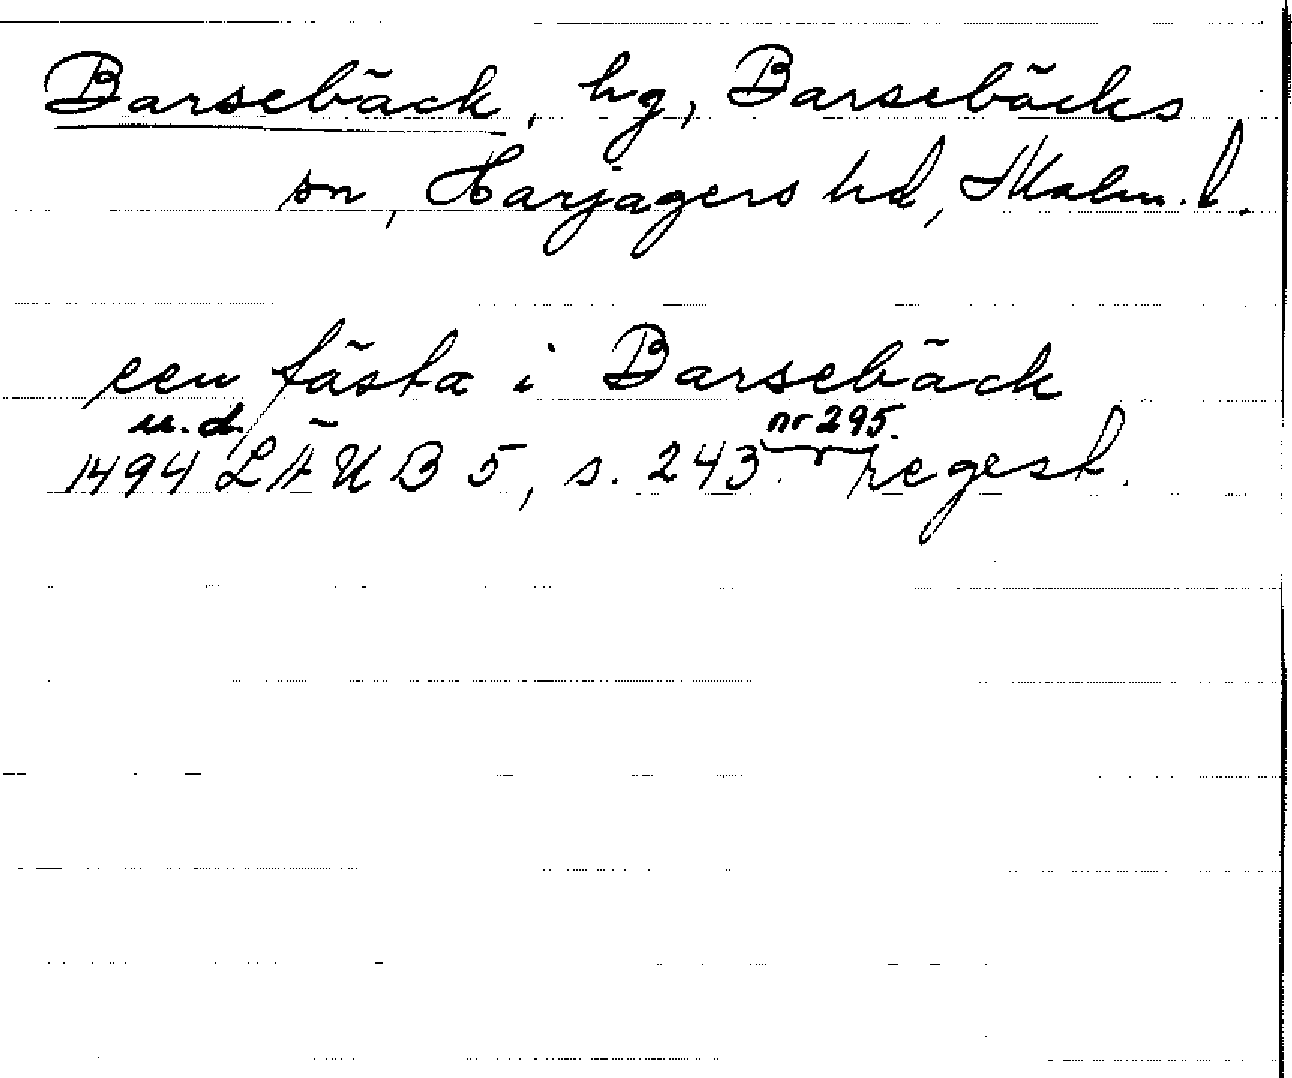 Barsebäck, hg, Barsebäcks
sn, Harjagers hd, Malm. l.
een fästa i Barsebäck
u.d. nr 295.
1494 LÄUB 5, s. 243. regest.